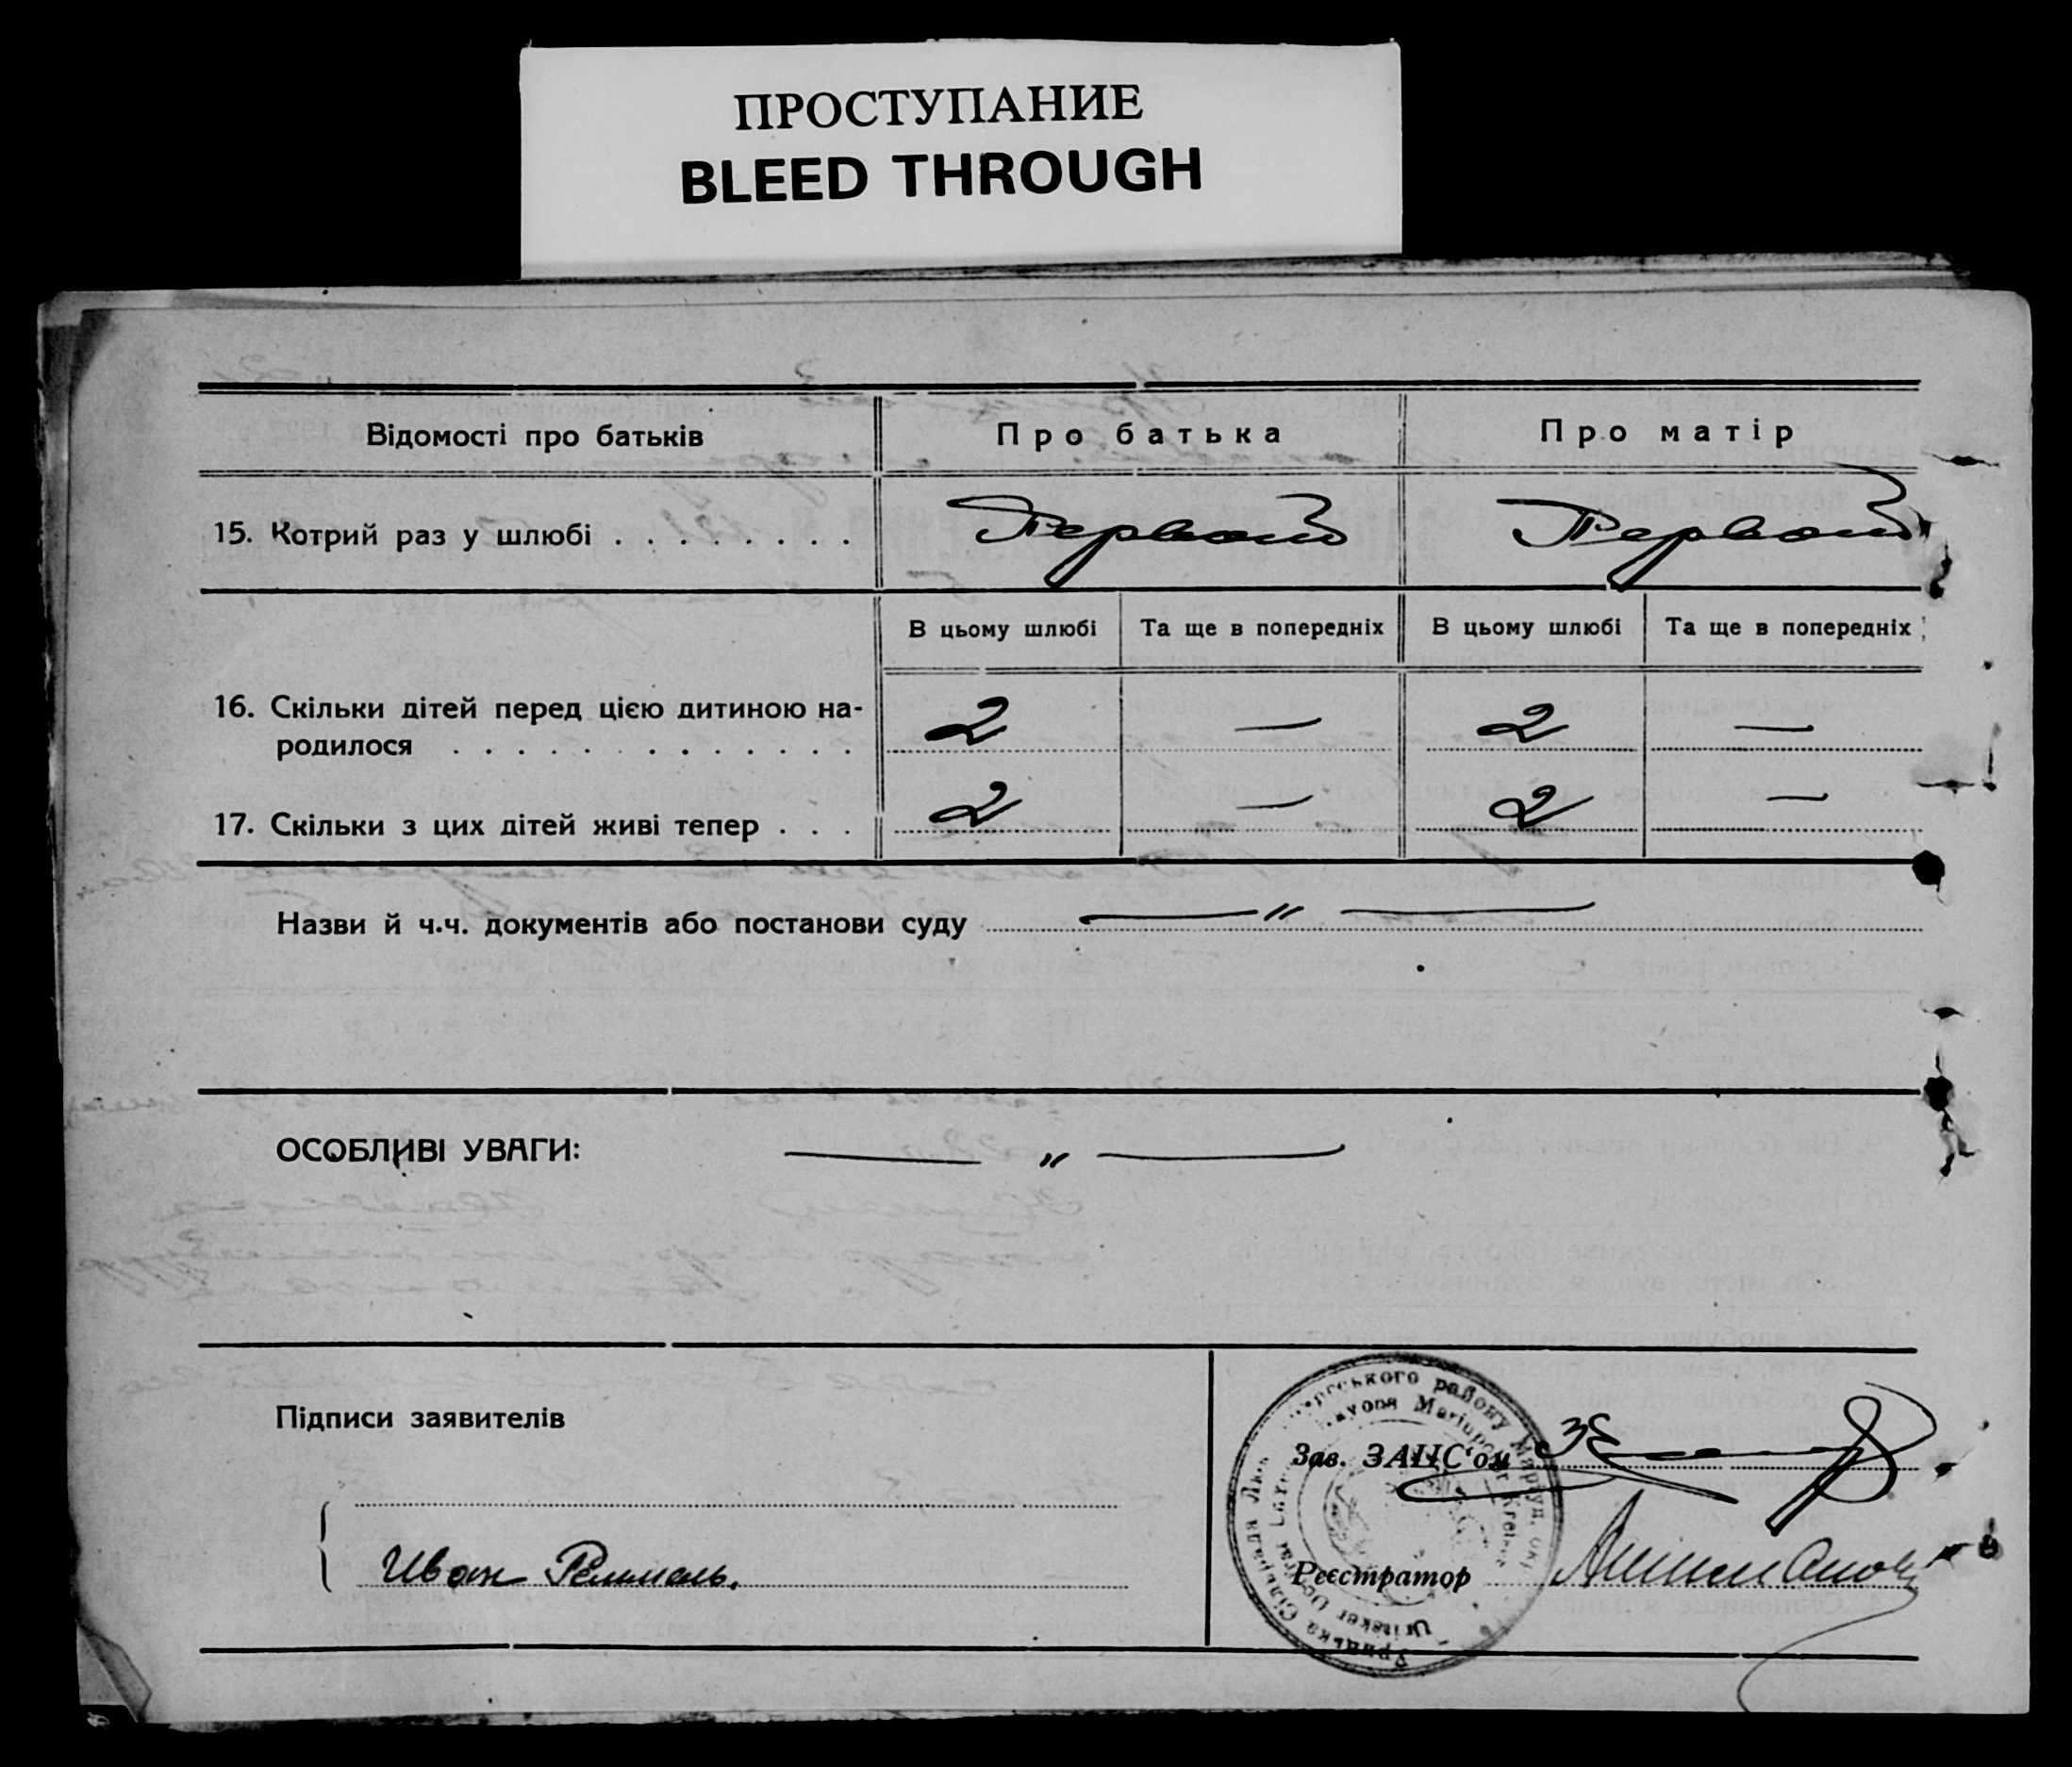 ПРОСТУПАНИЕ
BLEED THROUGH
Відомості про батьків
Про батька
Про матір
15. Котрий раз у шлюбі . . . . . . . .
Первый
Первый
В цьому шлюбі
Та ще в попередніх
В цьому шлюбі
Та ще в попередніх
16. Скільки дітей перед цією дитиною на-
родилося . . . . . . . . . . . . .
2 — 2 —
17. Скільки з цих дітей живі тепер . . .
2 — 2 —
Назви й ч.ч. документів або постанови суду — " —
ОСОБЛИВІ УВАГИ: — " —
Підписи заявителів
Иван
Зав. ЗАЦС'ом
Реєстратор
району Маріуп. окр
Сільрада